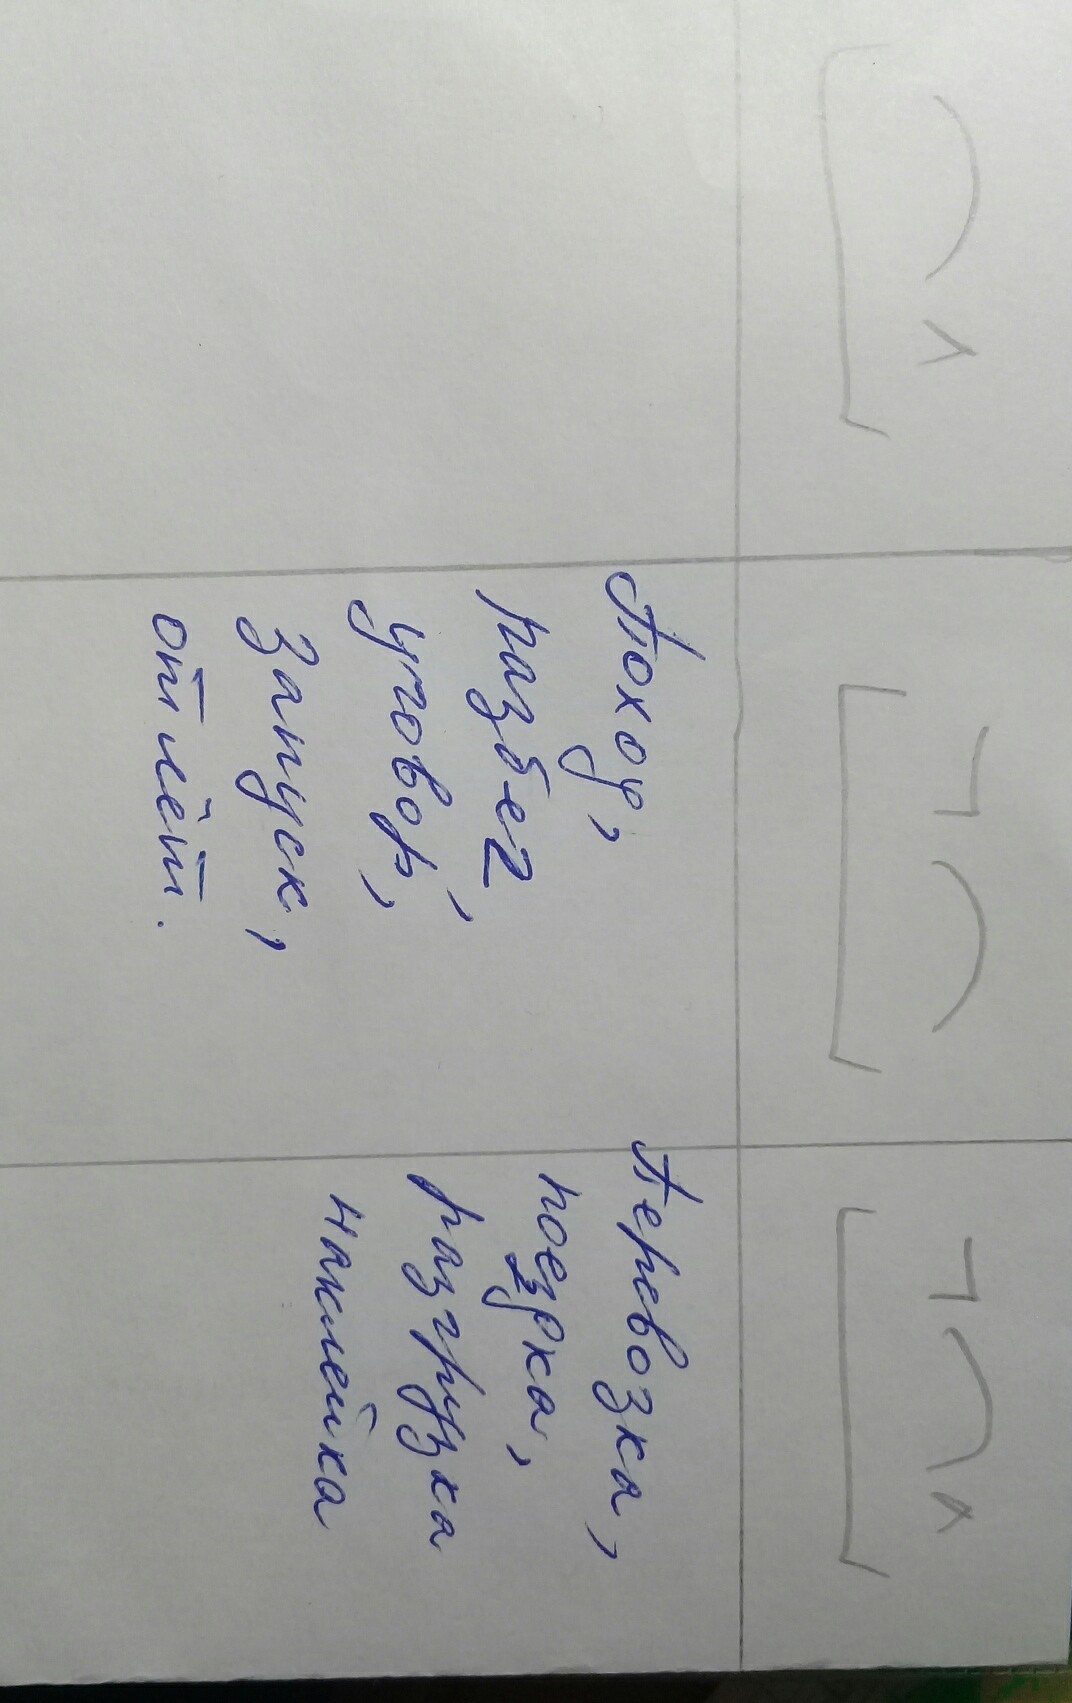 Поход,
разбег,
уговор,
запуск,
отлёт.
Перевозка,
поездка,
разгрузка
наклейка